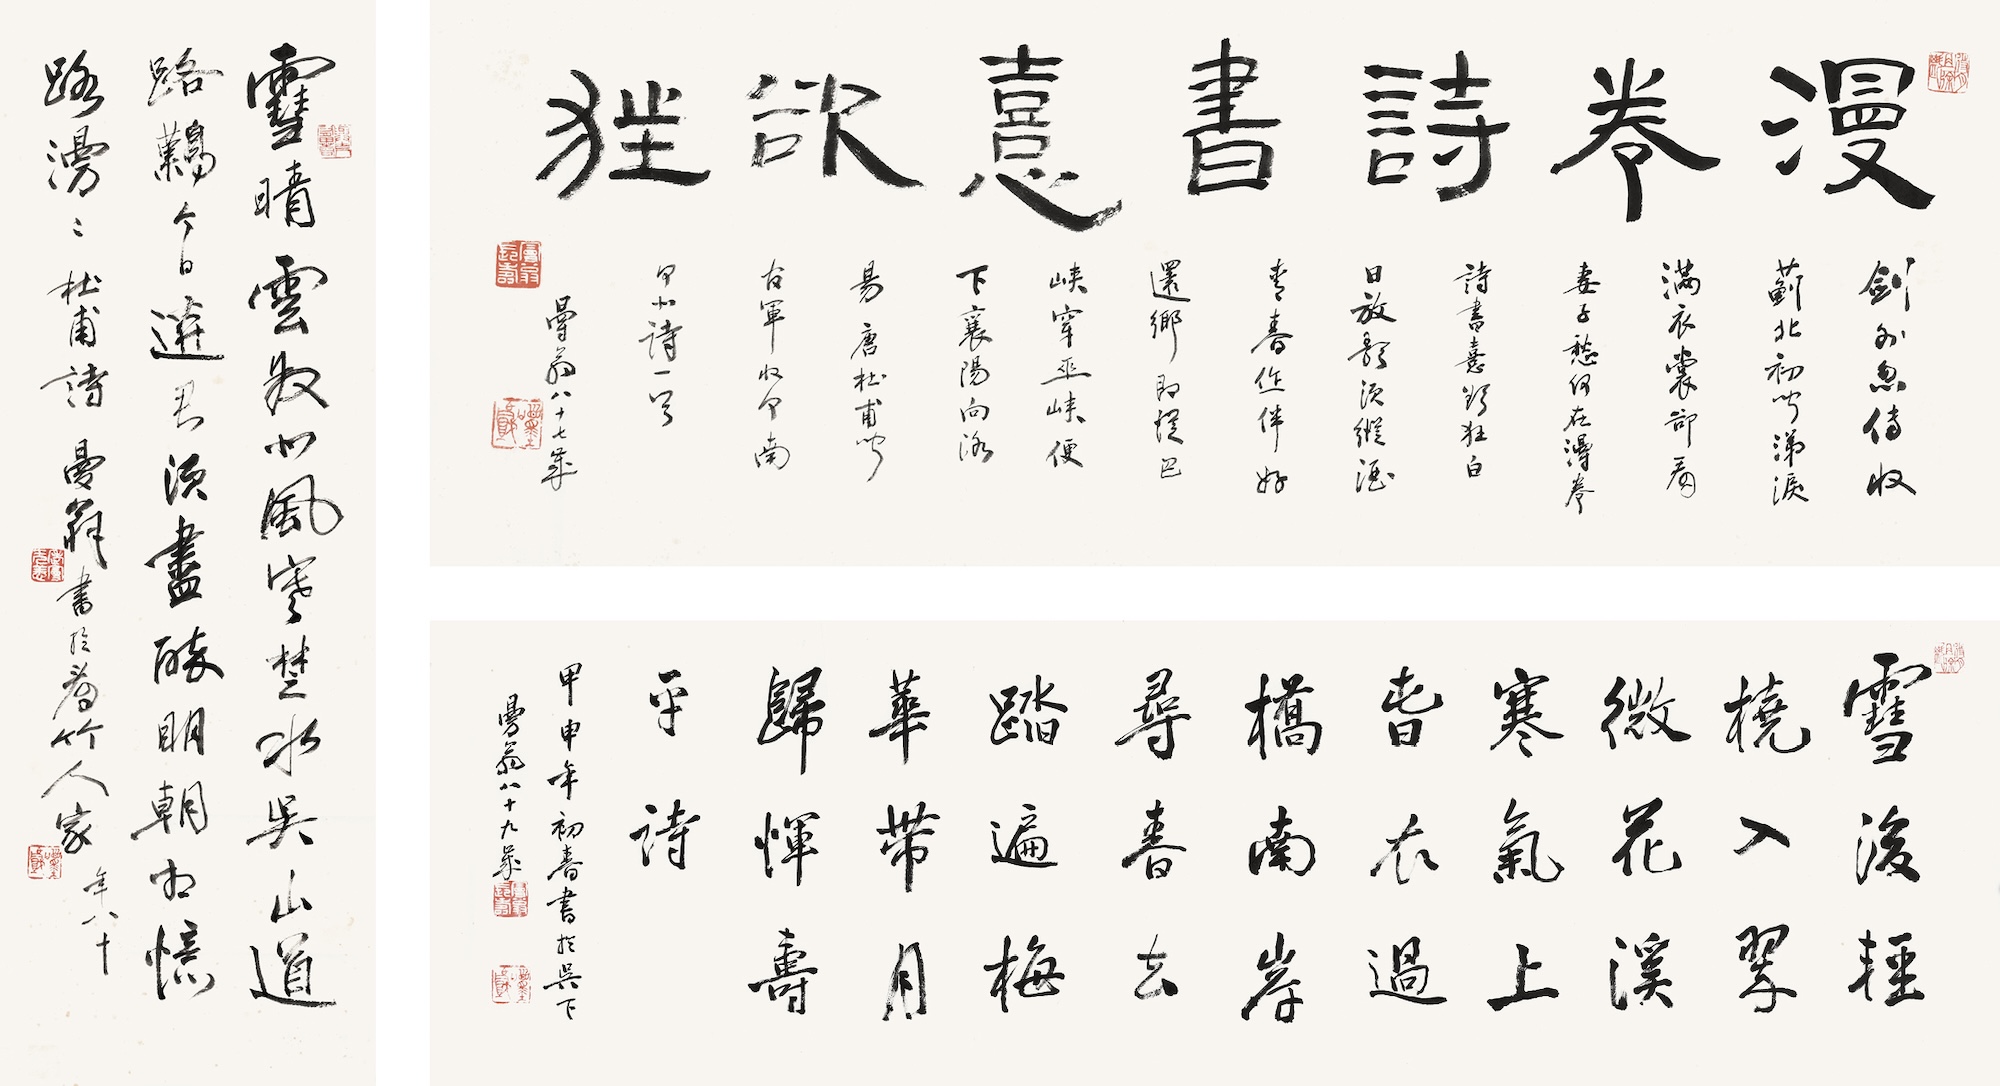 雪晴雲散北風寒楚水吳山道
路難今日送君須盡醉明朝相憶
路漫〻杜甫詩 曼翁書於看竹人家 年八十
漫卷詩書憙欲狂
劍外忽傳收
薊北初聞涕淚
滿衣裳卻看
妻子愁何在漫卷
詩書憙欲狂白
日放歌須縱酒
青春作伴好
還鄉即從巴
峽穿巫峽便
下襄陽向洛
陽 唐杜甫聞
官軍收河南
河北詩一首
曼翁八十七歲
雪後輕
橈入翠
微花溪
寒氣上
春衣過
橋南岸
尋春去
踏遍梅
華帶月
歸惲壽
平詩
甲申年初春書於吳下
曼翁八十九歲